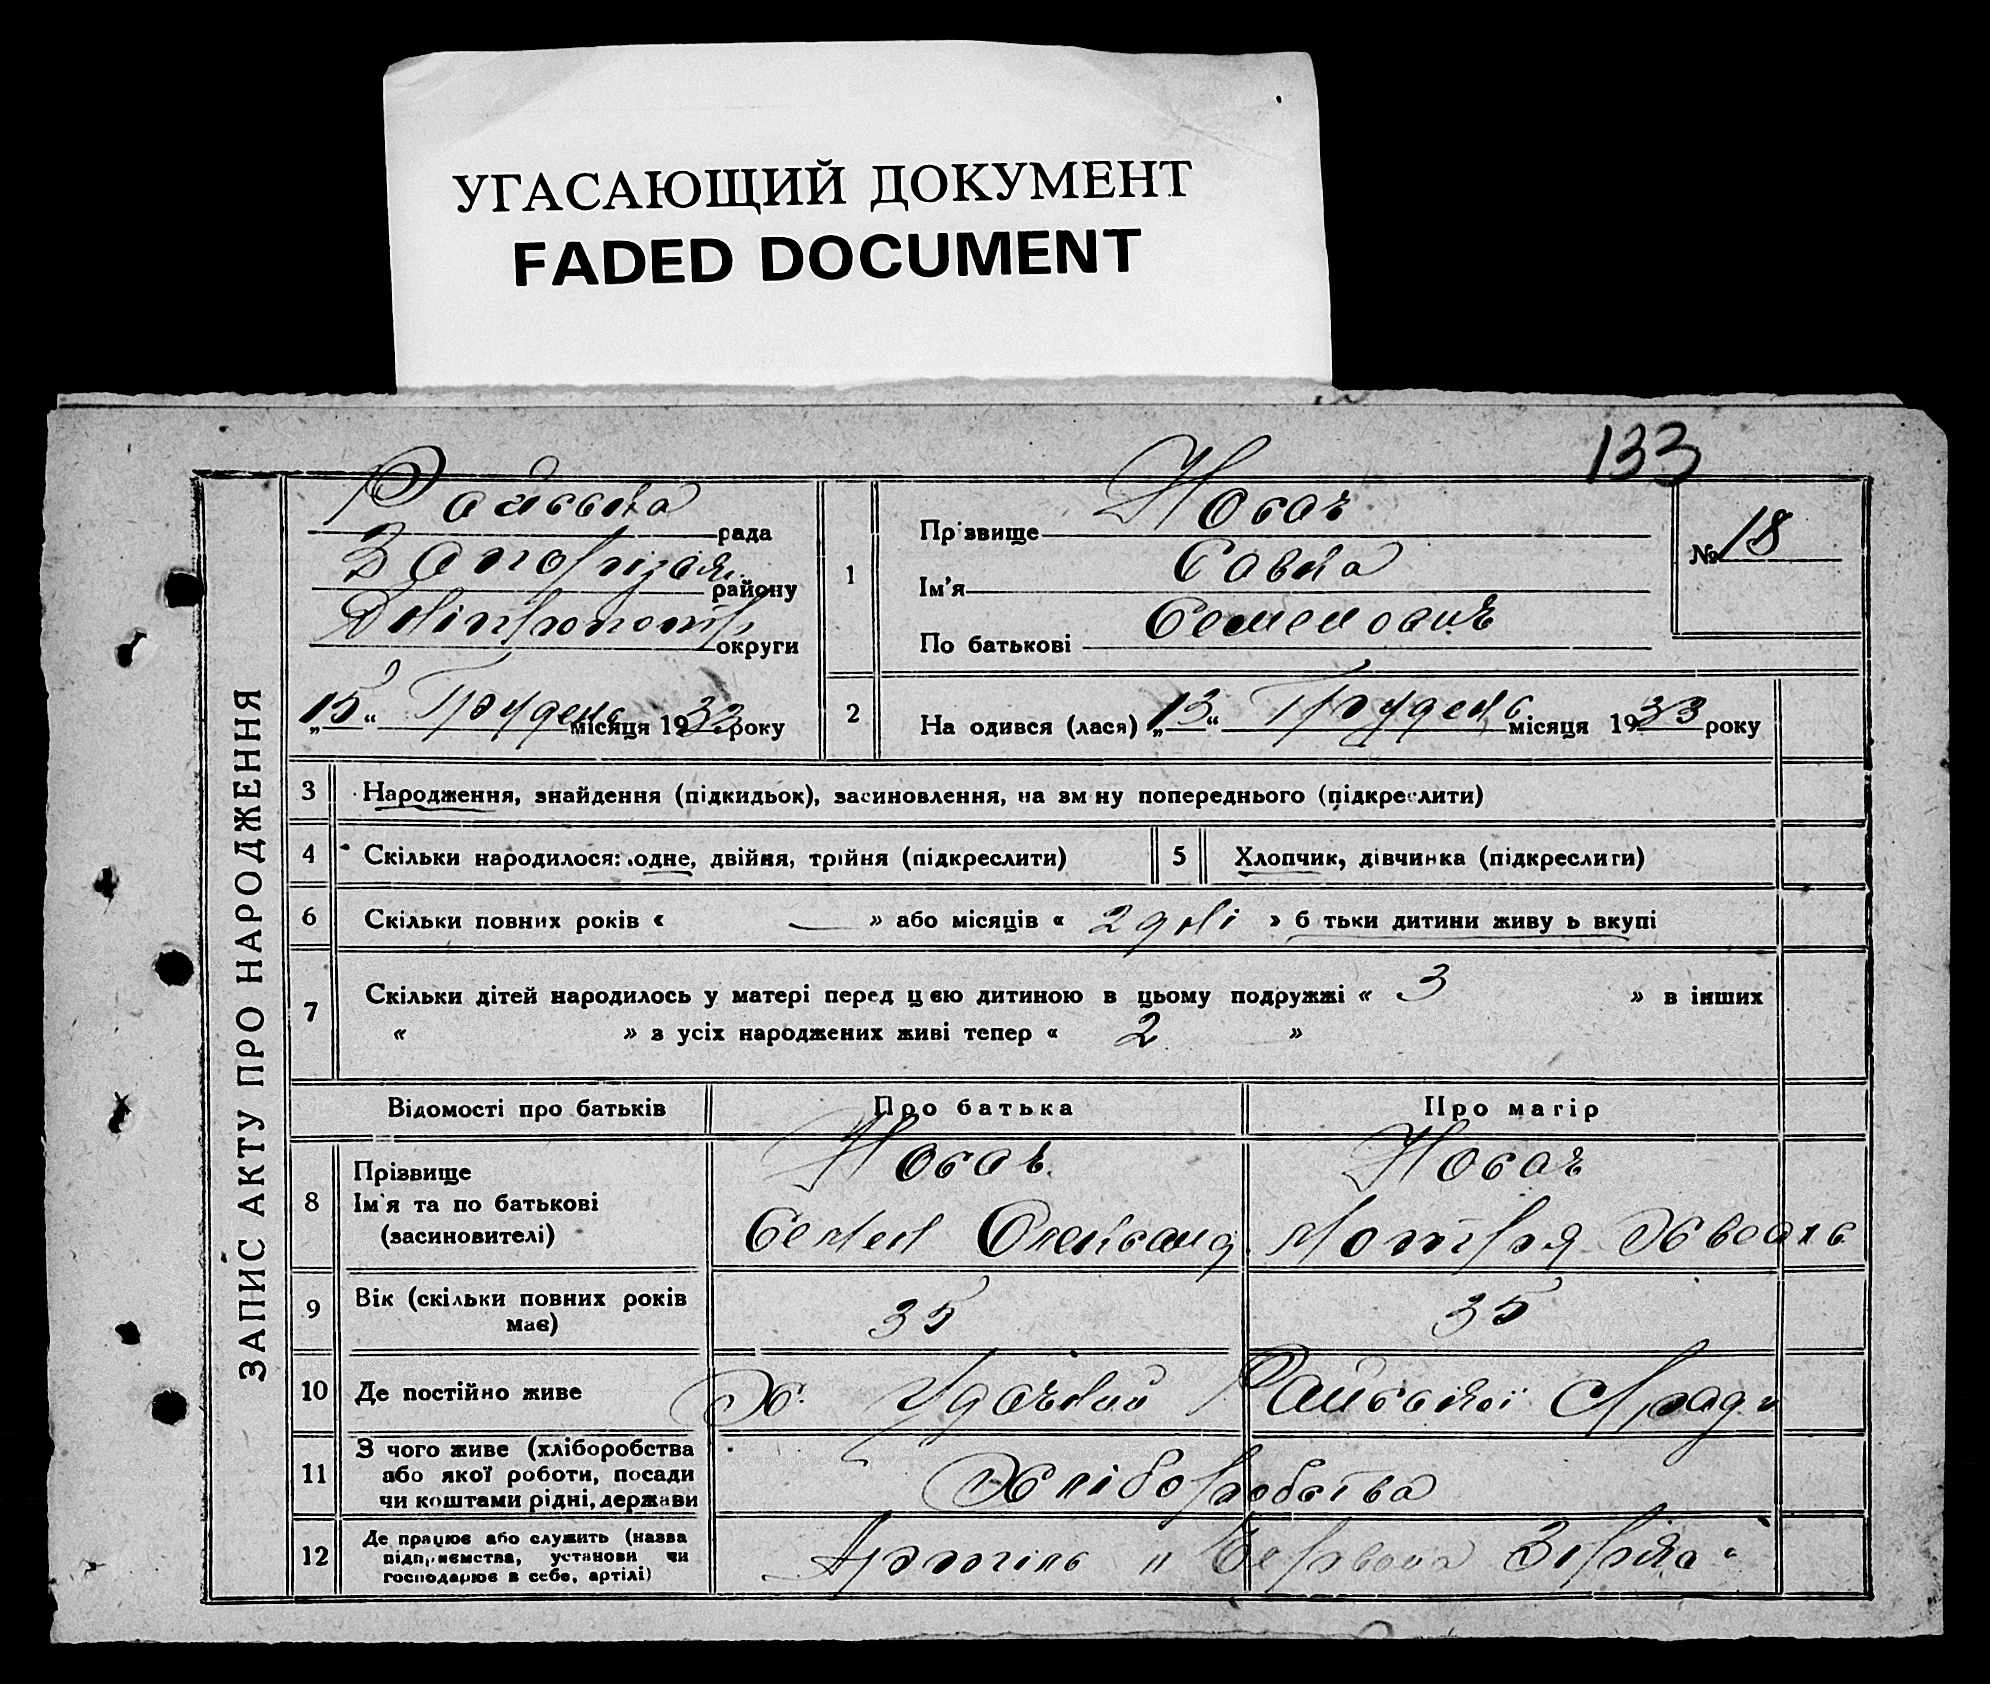 УГАСАЮЩИЙ ДОКУМЕНТ
FADED DOCUMENT
133
ЗАПИС АКТУ ПРО НАРОДЖЕННЯ
Райська рада
району
округи
„15“ Грудень місяця 1933 року
1
Прізвище Носач
Ім'я Савка
По батькові Семенович
№ 18
2 На одився (лася) „13“ Грудень місяця 1933 року
3 Народження, знайдення (підкидьок), засиновлення, на зм ну попереднього (підкреслити)
4 Скільки народилося: одне, двійня, трійня (підкреслити)
5 Хлопчик, дівчинка (підкреслити)
6 Скільки повних років « — » або місяців « 2 дні » б тьки дитини живу ь вкупі
7 Скільки дітей народилось у матері перед цією дитиною в цьому подружжі « 3 » в інших
« » з усіх народжених живі тепер « 2 »
Відомості про батьків Про батька Про матір
8 Прізвище Носач Носач
Ім'я та по батькові
(засиновителі) Семен Олександ Мотря
9 Вік (скільки повних років має) 35 35
10 Де постійно живе Х. Удачний Райської с/ради
11 З чого живе (хліборобства
або якої роботи, посади
чи коштами рідні, держави Хліборобства
12 Де працює або служить (назва
підприємства, установи чи
господарює в себе, артілі) Артіль „Червона Зірка“